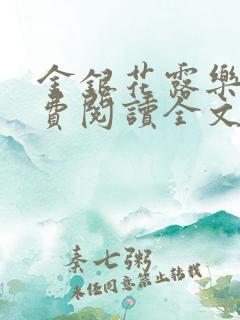 金銀花露樂
費閱讀全文
秦七粥
未经同意禁止转载